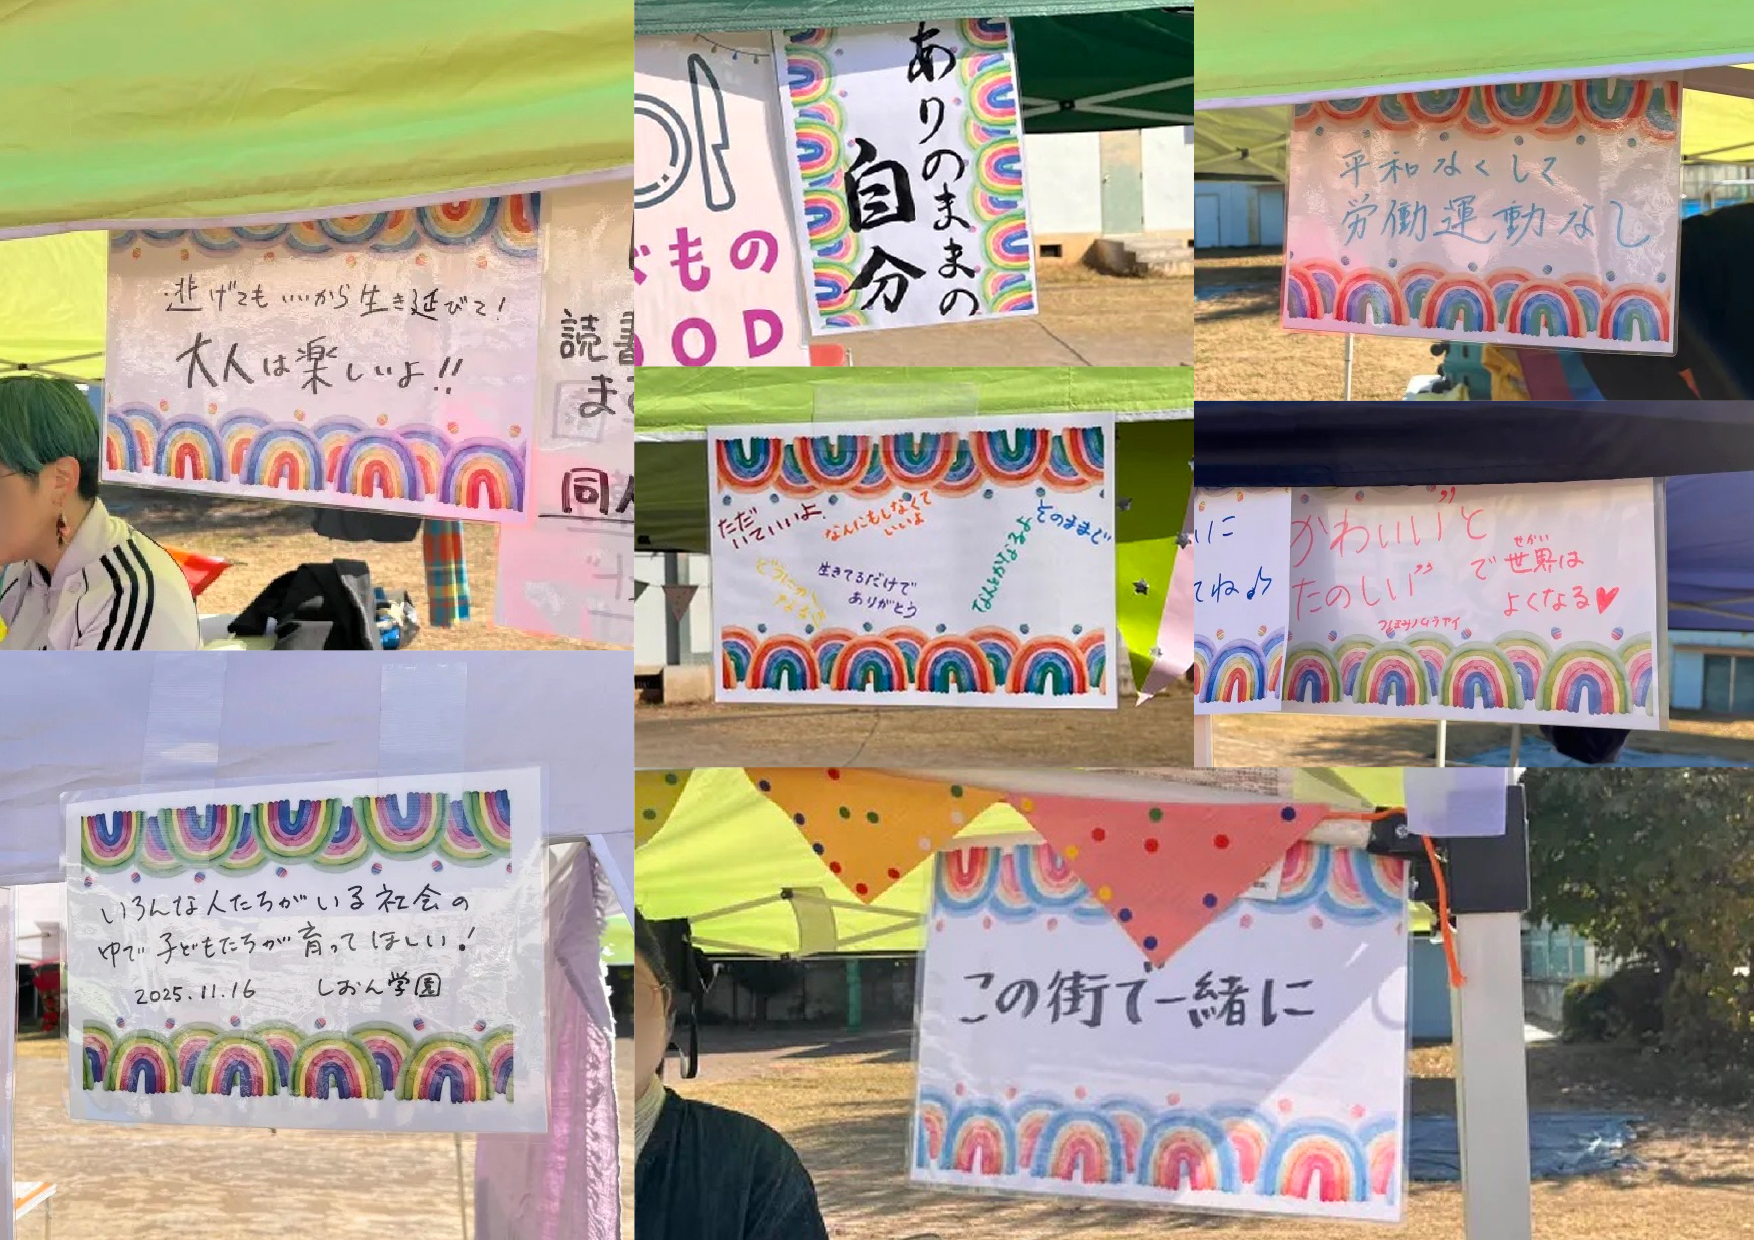 逃げてもいいから生き延びて!
大人は楽しいよ!!
読書
同人
ありのままの
自分
どもの
OOD
平和なくして
労働運動なし
ただ
いていいよ
なんにもしなくて
いいよ
そのままで
なんとかなるよ
どうにか
なるよ
生きてるだけで
ありがとう
に
てね♪
"かわいい"と
"たのしい"
で世界は
せかい
よくなる♥
いろんな人たちがいる社会の
中で子どもたちが育ってほしい!
2025.11.16 しおん学園
この街で一緒に